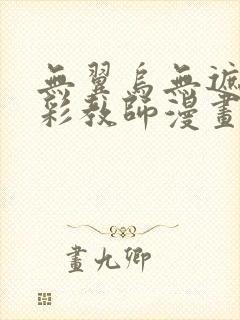 無翼烏無遮
彩教師漫畫
畫九卿